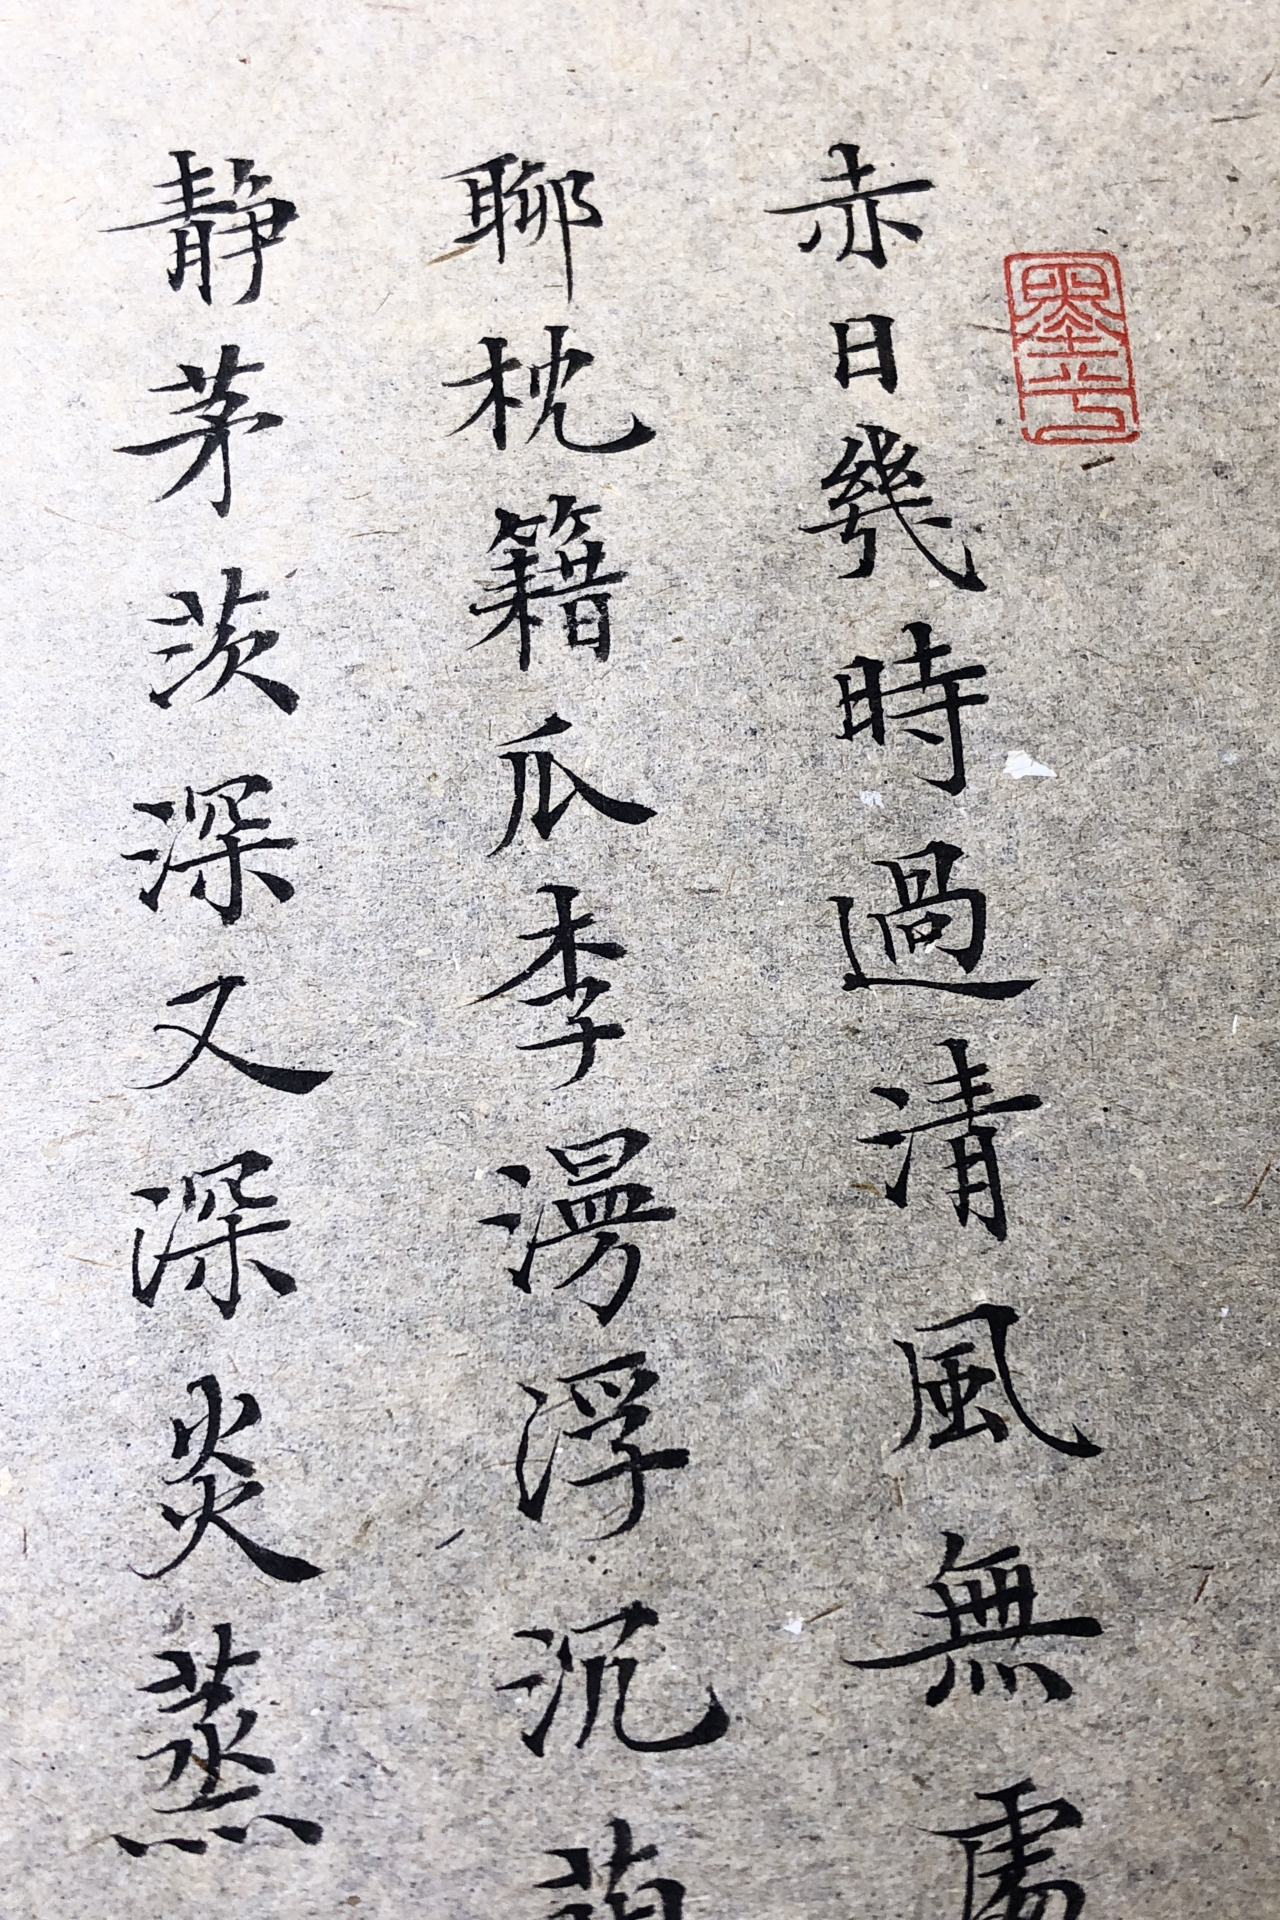 墨
赤日幾時過清風無處
聊枕籍瓜李漫浮沉
静茅茨深又深炎蒸